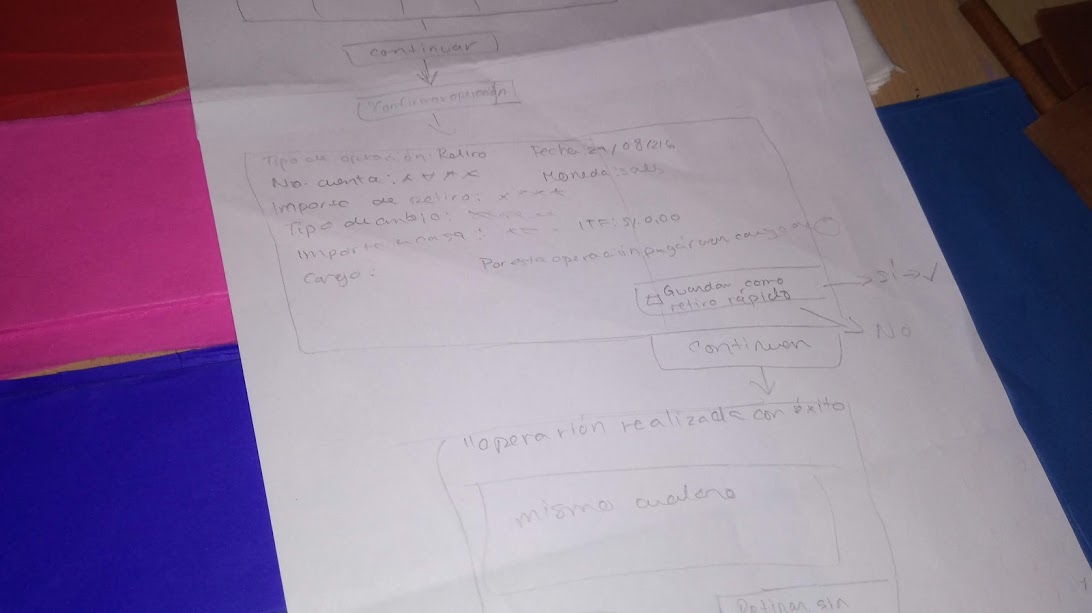 continuar
Confirmar operación
Tipo de operación: Retiro Fecha: 29/08/216
No. cuenta: x x x x Moneda: soles
Importe de retiro: x x x x
Tipo de ambio: ITF: S/. 0.00
Importe
Cargo: Por esta operación pagará un cargo de
Guardar como
retiro rápido
sí → ✓
No
Continuar
"operación realizada con éxito
mismo cuadro
Retirar sin